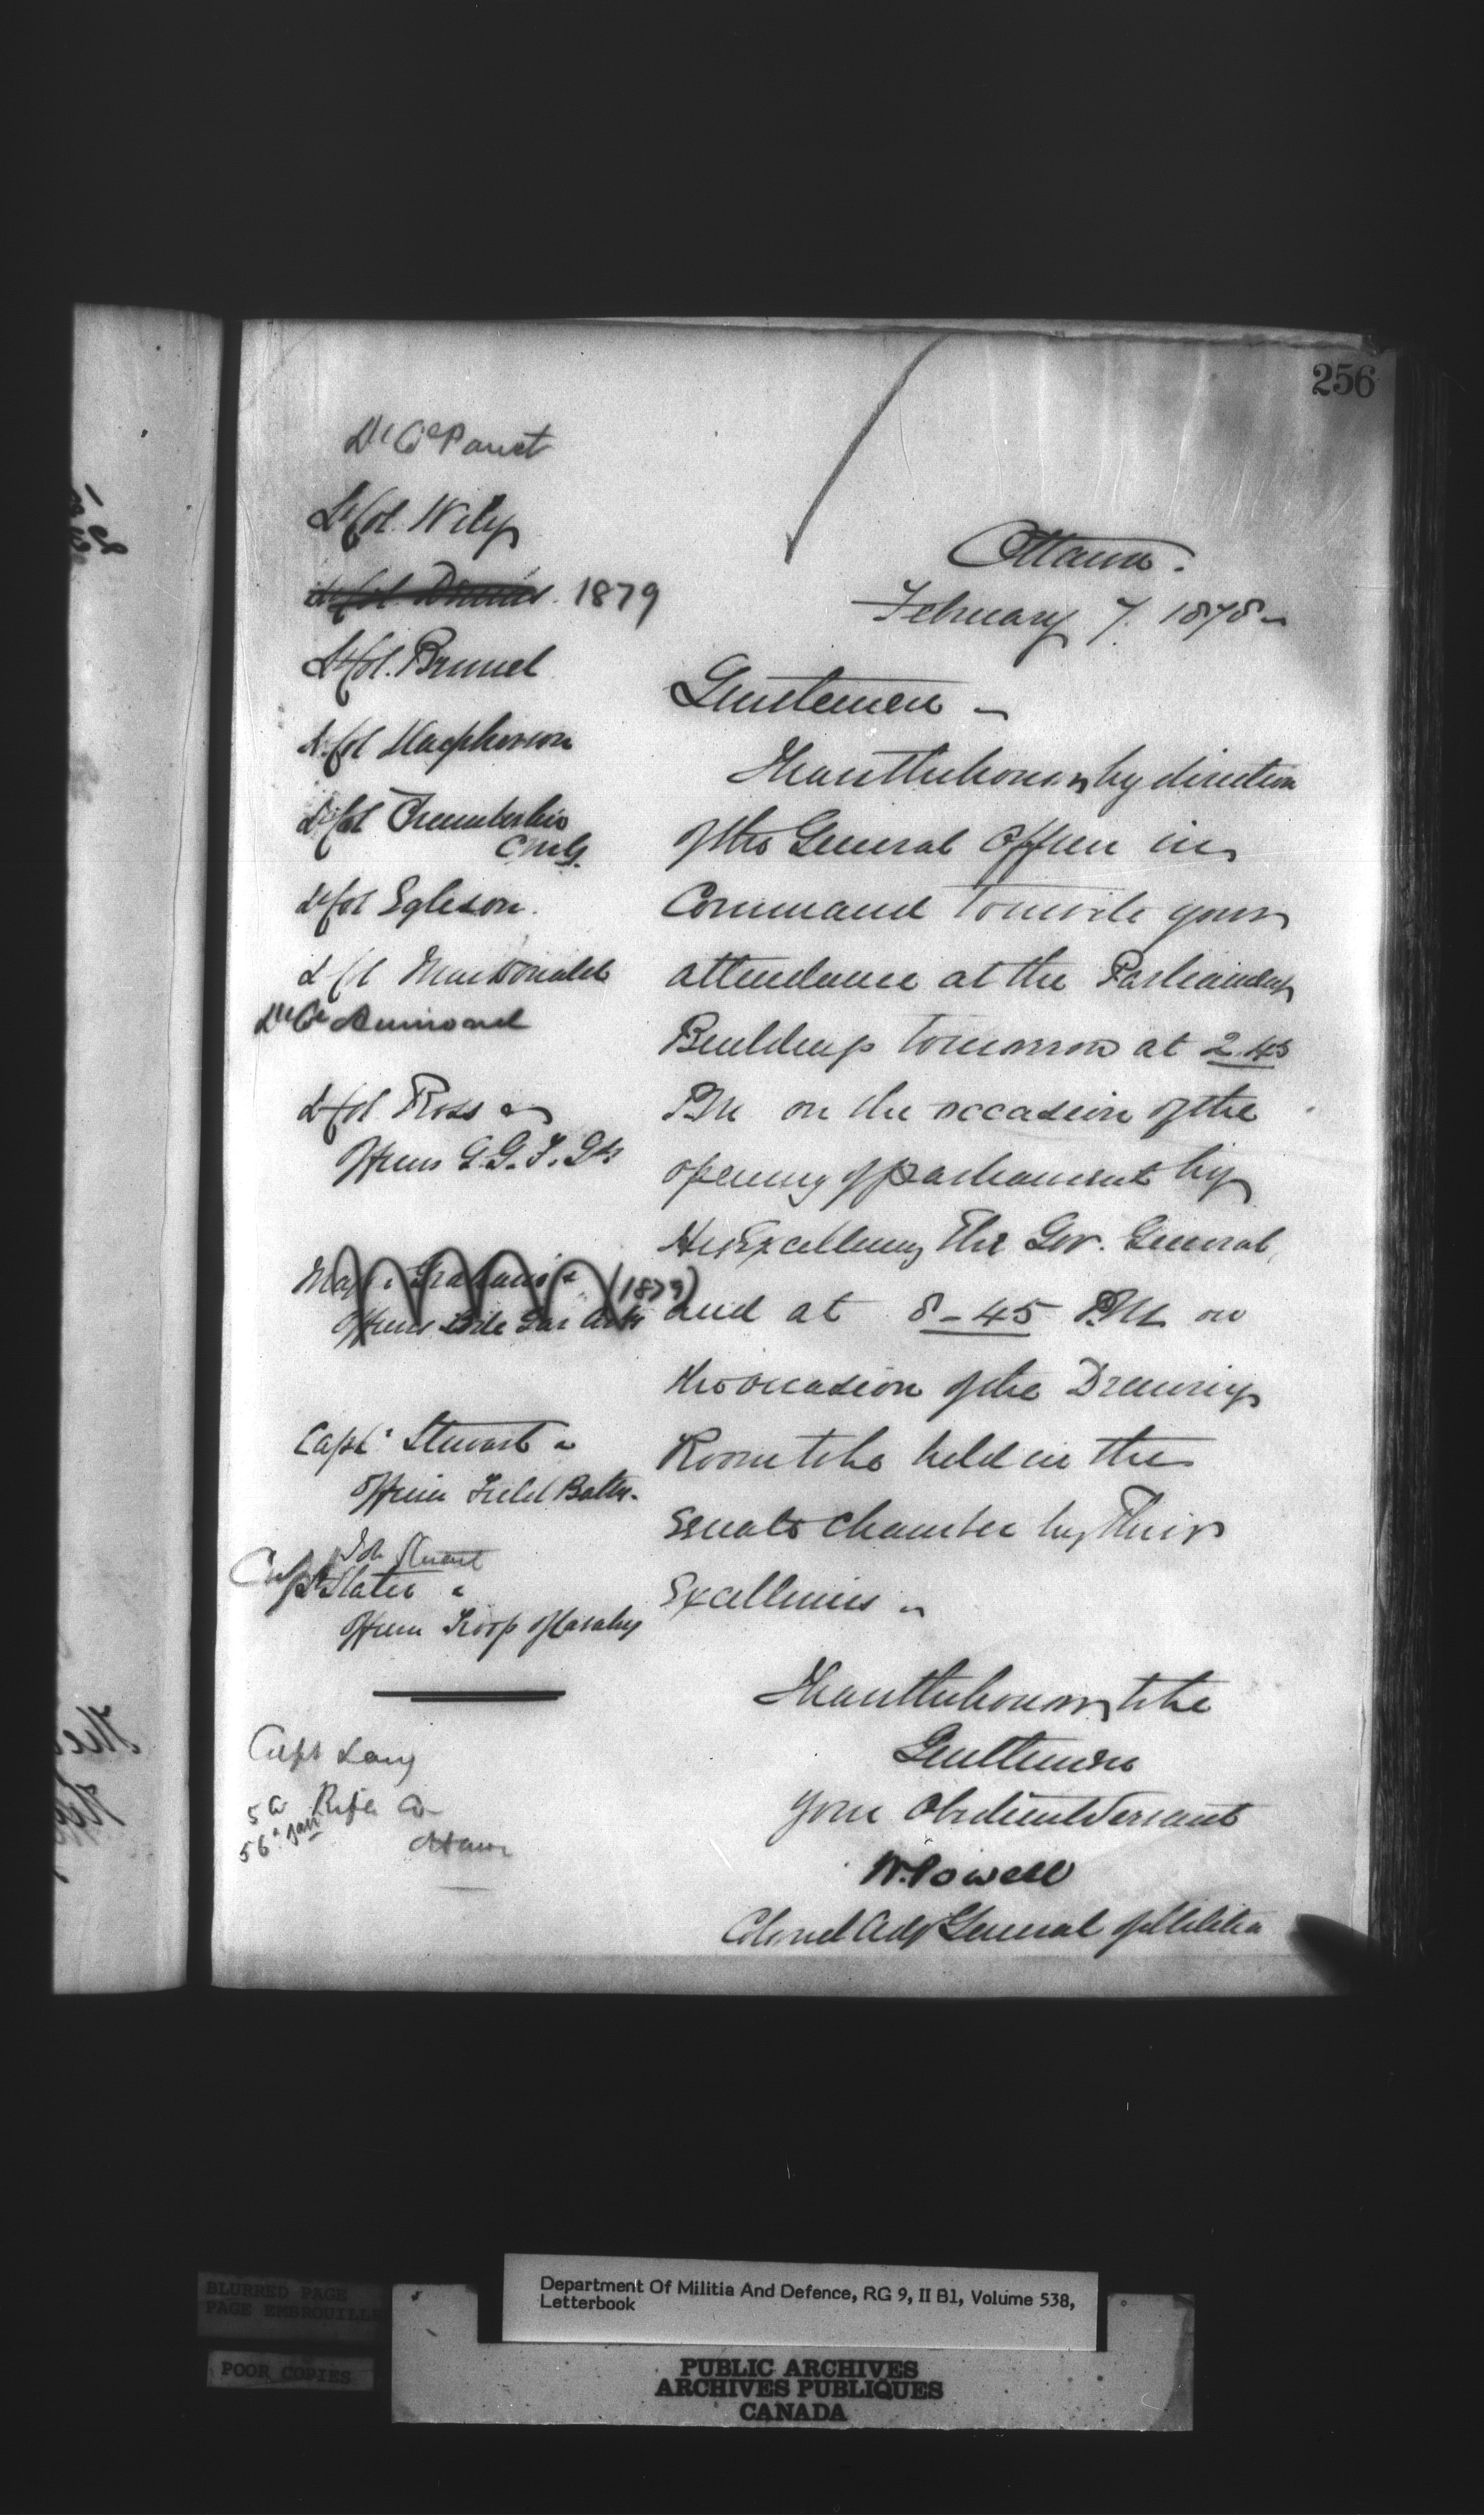 256
Lt Col Panet
Lt Col. Wily
Lt Col. Dennis. 1879
Lt Col. Brunel
Lt Col Macpherson
Lt Col Chamberlin
CMG.
Lt Col Egleson.
Lt Col MacDonald
Lt Col Aumond
Lt Col Ross &
Officers G.G.F. Gds
Major Graham & (1879)
Officers Bde Gar Arty
Capt. Stewart &
Officers Field Batty.
Joh Stuart
Capt Slater &
Officers Troop of Cavalry
Capt Lang
Rifle Co
56
Ottawa
Ottawa.
February 7. 1878
Gentlemen
I have the honor by direction
of the General Officer in
Command to invite your
attendance at the Parliament
Buildings tomorrow at 2.45
PM on the occasion of the
opening of parliament by
His Excellency The Gov. General,
and at 8-45 PM on
the occasion of the Drawing
Room to be held in the
Senate Chamber by Their
Excellencies
I have the honor to be
Gentlemen
Your Obedient Servant
W. Powell
Colonel Adjt General of Militia
BLURRED PAGE
PAGE EMBROUILLE
POOR COPIES
Department Of Militia And Defence, RG 9, II B1, Volume 538,
Letterbook
PUBLIC ARCHIVES
ARCHIVES PUBLIQUES
CANADA